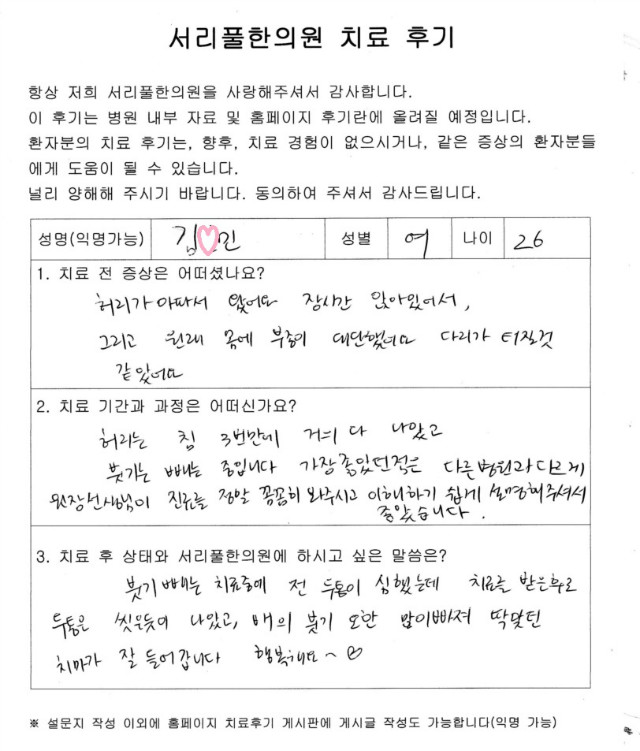 서리풀한의원 치료 후기
항상 저희 서리풀한의원을 사랑해주셔서 감사합니다.
이 후기는 병원 내부 자료 및 홈페이지 후기란에 올려질 예정입니다.
환자분의 치료 후기는, 향후, 치료 경험이 없으시거나, 같은 증상의 환자분들
에게 도움이 될 수 있습니다.
널리 양해해 주시기 바랍니다. 동의하여 주셔서 감사드립니다.
성명(익명가능) 김♡민 성별 여 나이 26
1. 치료 전 증상은 어떠셨나요?
허리가 아파서 왔어요 장시간 앉아있어서,
그리고 원래 몸에 부종이 대단했어요 다리가 터질것
같았어요
2. 치료 기간과 과정은 어떠신가요?
허리는 침 3번만에 거의 다 나았고
붓기는 빼는 중입니다 가장좋았던적은 다른병원과 다르게
원장선생님이 진료를 정말 꼼꼼히 봐주시고 이해하기 쉽게 설명해주셔서
좋았습니다.
3. 치료 후 상태와 서리풀한의원에 하시고 싶은 말씀은?
붓기 빼는 치료중에 전 두통이 심했는데 치료를 받은후로
두통은 씻은듯이 나았고, 배의 붓기 또한 많이빠져 딱맞던
치마가 잘 들어갑니다 행복해요~
※ 설문지 작성 이외에 홈페이지 치료후기 게시판에 게시글 작성도 가능합니다(익명 가능)